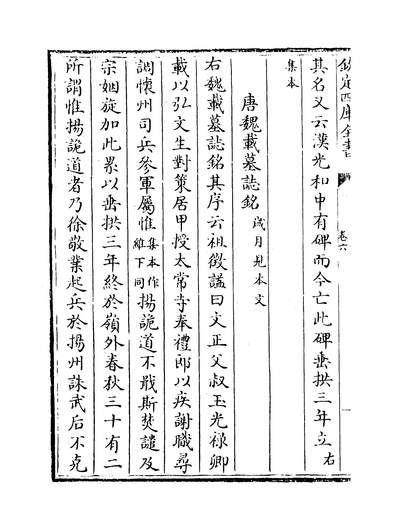 欽定四庫全書
卷六
其名又云漢光和中有碑而今亡此碑垂拱三年立右
集本
唐魏載墓誌銘歲月見本文
右魏載墓誌銘其序云祖徵諡曰文正父叔玉光祿卿
載以弘文生對策居甲授太常寺奉禮郎以疾謝職尋
調懷州司兵參軍屬惟集本作維下同揚詭道不戢斯焚譴及
宗姻旋加此累以垂拱三年終於嶺外春秋三十有二
所謂惟揚詭道者乃徐敬業起兵於揚州誅武后不克